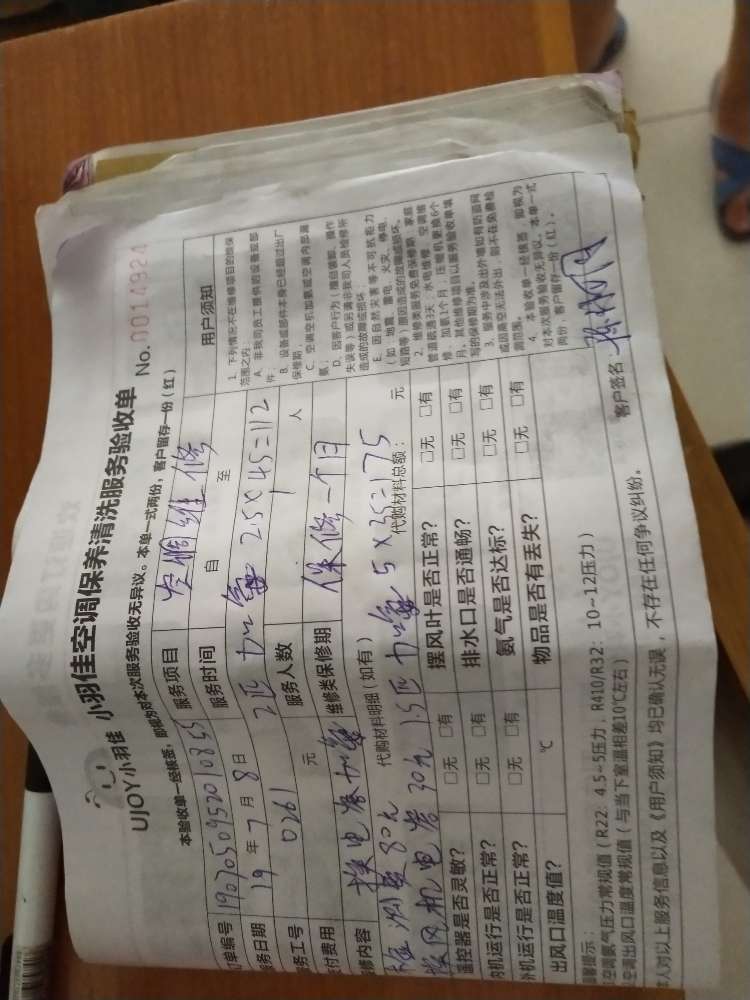 UJOY小羽佳 小羽佳空调保养清洗服务验收单 No.0014924
本验收单一经核签，即视为对本次服务验收无异议。本单一式两份，客户留存一份（红）
订单编号 190705095201085 服务项目 空调维修
服务日期 19 年 7 月 8 日 服务时间 自 至
2匹加氟 2.5×45=112
服务工号 0261 服务人数 1 人
应付费用 元 维修类保修期 保修一个月
维修内容 换电容加氟 代购材料明细（如有） 代购材料总额： 元
检测费80元
风机电容 30元 1.5匹加氟 5×35=175
遥控器是否灵敏？ □无 □有 摆风叶是否正常？ □无 □有
内机运行是否正常？ □无 □有 排水口是否通畅？ □无 □有
外机运行是否正常？ □无 □有 氨气是否达标？ □无 □有
出风口温度值？ ℃ 物品是否有丢失？ □无 □有
用户须知
1. 下列情况不在维修项目的质保
范围之内：
A. 非我司员工提供的设备或部
件；
B. 设备或部件本身已经超过出厂
保修期；
C. 空调空机加氨或空调内部漏
氨；
D. 因客户行为（擅自装卸、操作
失误等）或另请非我司人员检修所
造成的故障或损坏；
E. 因自然灾害等不可抗拒力
（如：地震、雷电、火灾、停电、
短路等）原因造成的故障或损坏。
2. 维修类服务免费保修期：家庭
管道疏通3天；水电维修、空调维
修、加氨1个月；压缩机更换6个
月。其他维修项目以服务验收单填
写的保修期为准。
3. 服务中涉及出外墙如有防盗网
或因高空无法外出，则不在免费检
调范围。
4. 本验收单一经核签，即视为
对本次服务验收无异议。本单一式
两份，客户留存一份（红）。
温馨提示：
空调氨气压力常规值（R22：4.5~5压力；R410/R32：10~12压力）
空调出风口温度常规值（与当下室温相差10℃左右）
本人对以上服务信息以及《用户须知》均已确认无误，不存在任何争议纠纷。 客户签名：